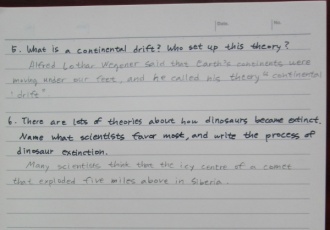 5. What is a continental drift? Who set up this theory?
Alfred Lothar Wegener said that Earth's continents were
moving under our feet, and he called his theory "continental
drift"
6. There are lots of theories about how dinosaurs became extinct.
Name what scientists favor most, and write the process of
dinosaur extinction.
Many scientists think that the icy centre of a comet
that exploded five miles above in Siberia.